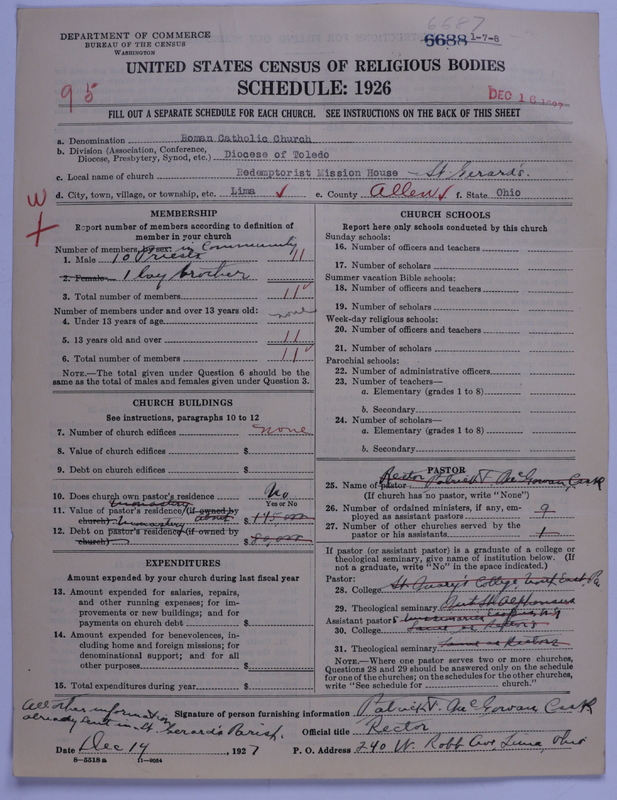 6687
DEPARTMENT OF COMMERCE
BUREAU OF THE CENSUS
WASHINGTON
6688 1-7-8
UNITED STATES CENSUS OF RELIGIOUS BODIES
SCHEDULE: 1926
95
DEC 16 1927
FILL OUT A SEPARATE SCHEDULE FOR EACH CHURCH. SEE INSTRUCTIONS ON THE BACK OF THIS SHEET
a. Denomination Roman Catholic Church
b. Division (Association, Conference, Diocese, Presbytery, Synod, etc.) Diocese of Toledo
c. Local name of church Redemptorist Mission House - St Gerard's.
d. City, town, village, or township, etc. Lima e. County Allen f. State Ohio
MEMBERSHIP
Report number of members according to definition of
member in your church
Number of members by sex: in Community
1. Male 10 Priests 11
2. Female 1 lay brother
3. Total number of members 11
Number of members under and over 13 years old:
4. Under 13 years of age none
5. 13 years old and over 11
6. Total number of members 11
NOTE.—The total given under Question 6 should be
same as the total of males and females given under Question 3.
CHURCH BUILDINGS
See instructions, paragraphs 10 to 12
7. Number of church edifices none
8. Value of church edifices $
9. Debt on church edifices $
10. Does church own pastor's residence No
Yes or No
11. Value of pastor's residence (if owned by
church) Monastery about $ 145000
12. Debt on pastor's residence (if owned by
church) $ 80000
EXPENDITURES
Amount expended by your church during last fiscal year
13. Amount expended for salaries, repairs,
and other running expenses; for im-
provements or new buildings; and for
payments on church debt $
14. Amount expended for benevolences, in-
cluding home and foreign missions; for
denominational support; and for all
other purposes $
15. Total expenditures during year $
CHURCH SCHOOLS
Report here only schools conducted by this church
Sunday schools:
16. Number of officers and teachers
17. Number of scholars
Summer vacation Bible schools:
18. Number of officers and teachers
19. Number of scholars
Week-day religious schools:
20. Number of officers and teachers
21. Number of scholars
Parochial schools:
22. Number of administrative officers
23. Number of teachers—
a. Elementary (grades 1 to 8)
b. Secondary
24. Number of scholars—
a. Elementary (grades 1 to 8)
b. Secondary
PASTOR
25. Name of pastor Rector Patrick T. McGowan, CssR
(If church has no pastor, write "None")
26. Number of ordained ministers, if any, em-
ployed as assistant pastors 9
27. Number of other churches served by the
pastor or his assistants 1
If pastor (or assistant pastor) is a graduate of a college or
theological seminary, give name of institution below. (If
not a graduate, write "No" in the space indicated.)
Pastor:
28. College St Mary's College North East, Pa
29. Theological seminary Mt St Alphonsus
Assistant pastor: Esopus, N.Y
30. College Same as Rector's
31. Theological seminary Same as Rectors
NOTE.—Where one pastor serves two or more churches,
Questions 28 and 29 should be answered only on the schedule
for one of the churches; on the schedules for the other churches,
write "See schedule for church."
All other information
already sent in St Gerard's Parish.
Signature of person furnishing information Patrick T. McGowan CssR
Official title Rector
Date Dec 14, 1927 P. O. Address 240 W. Robb Ave, Lima, Ohio
8—5518a 11—9024